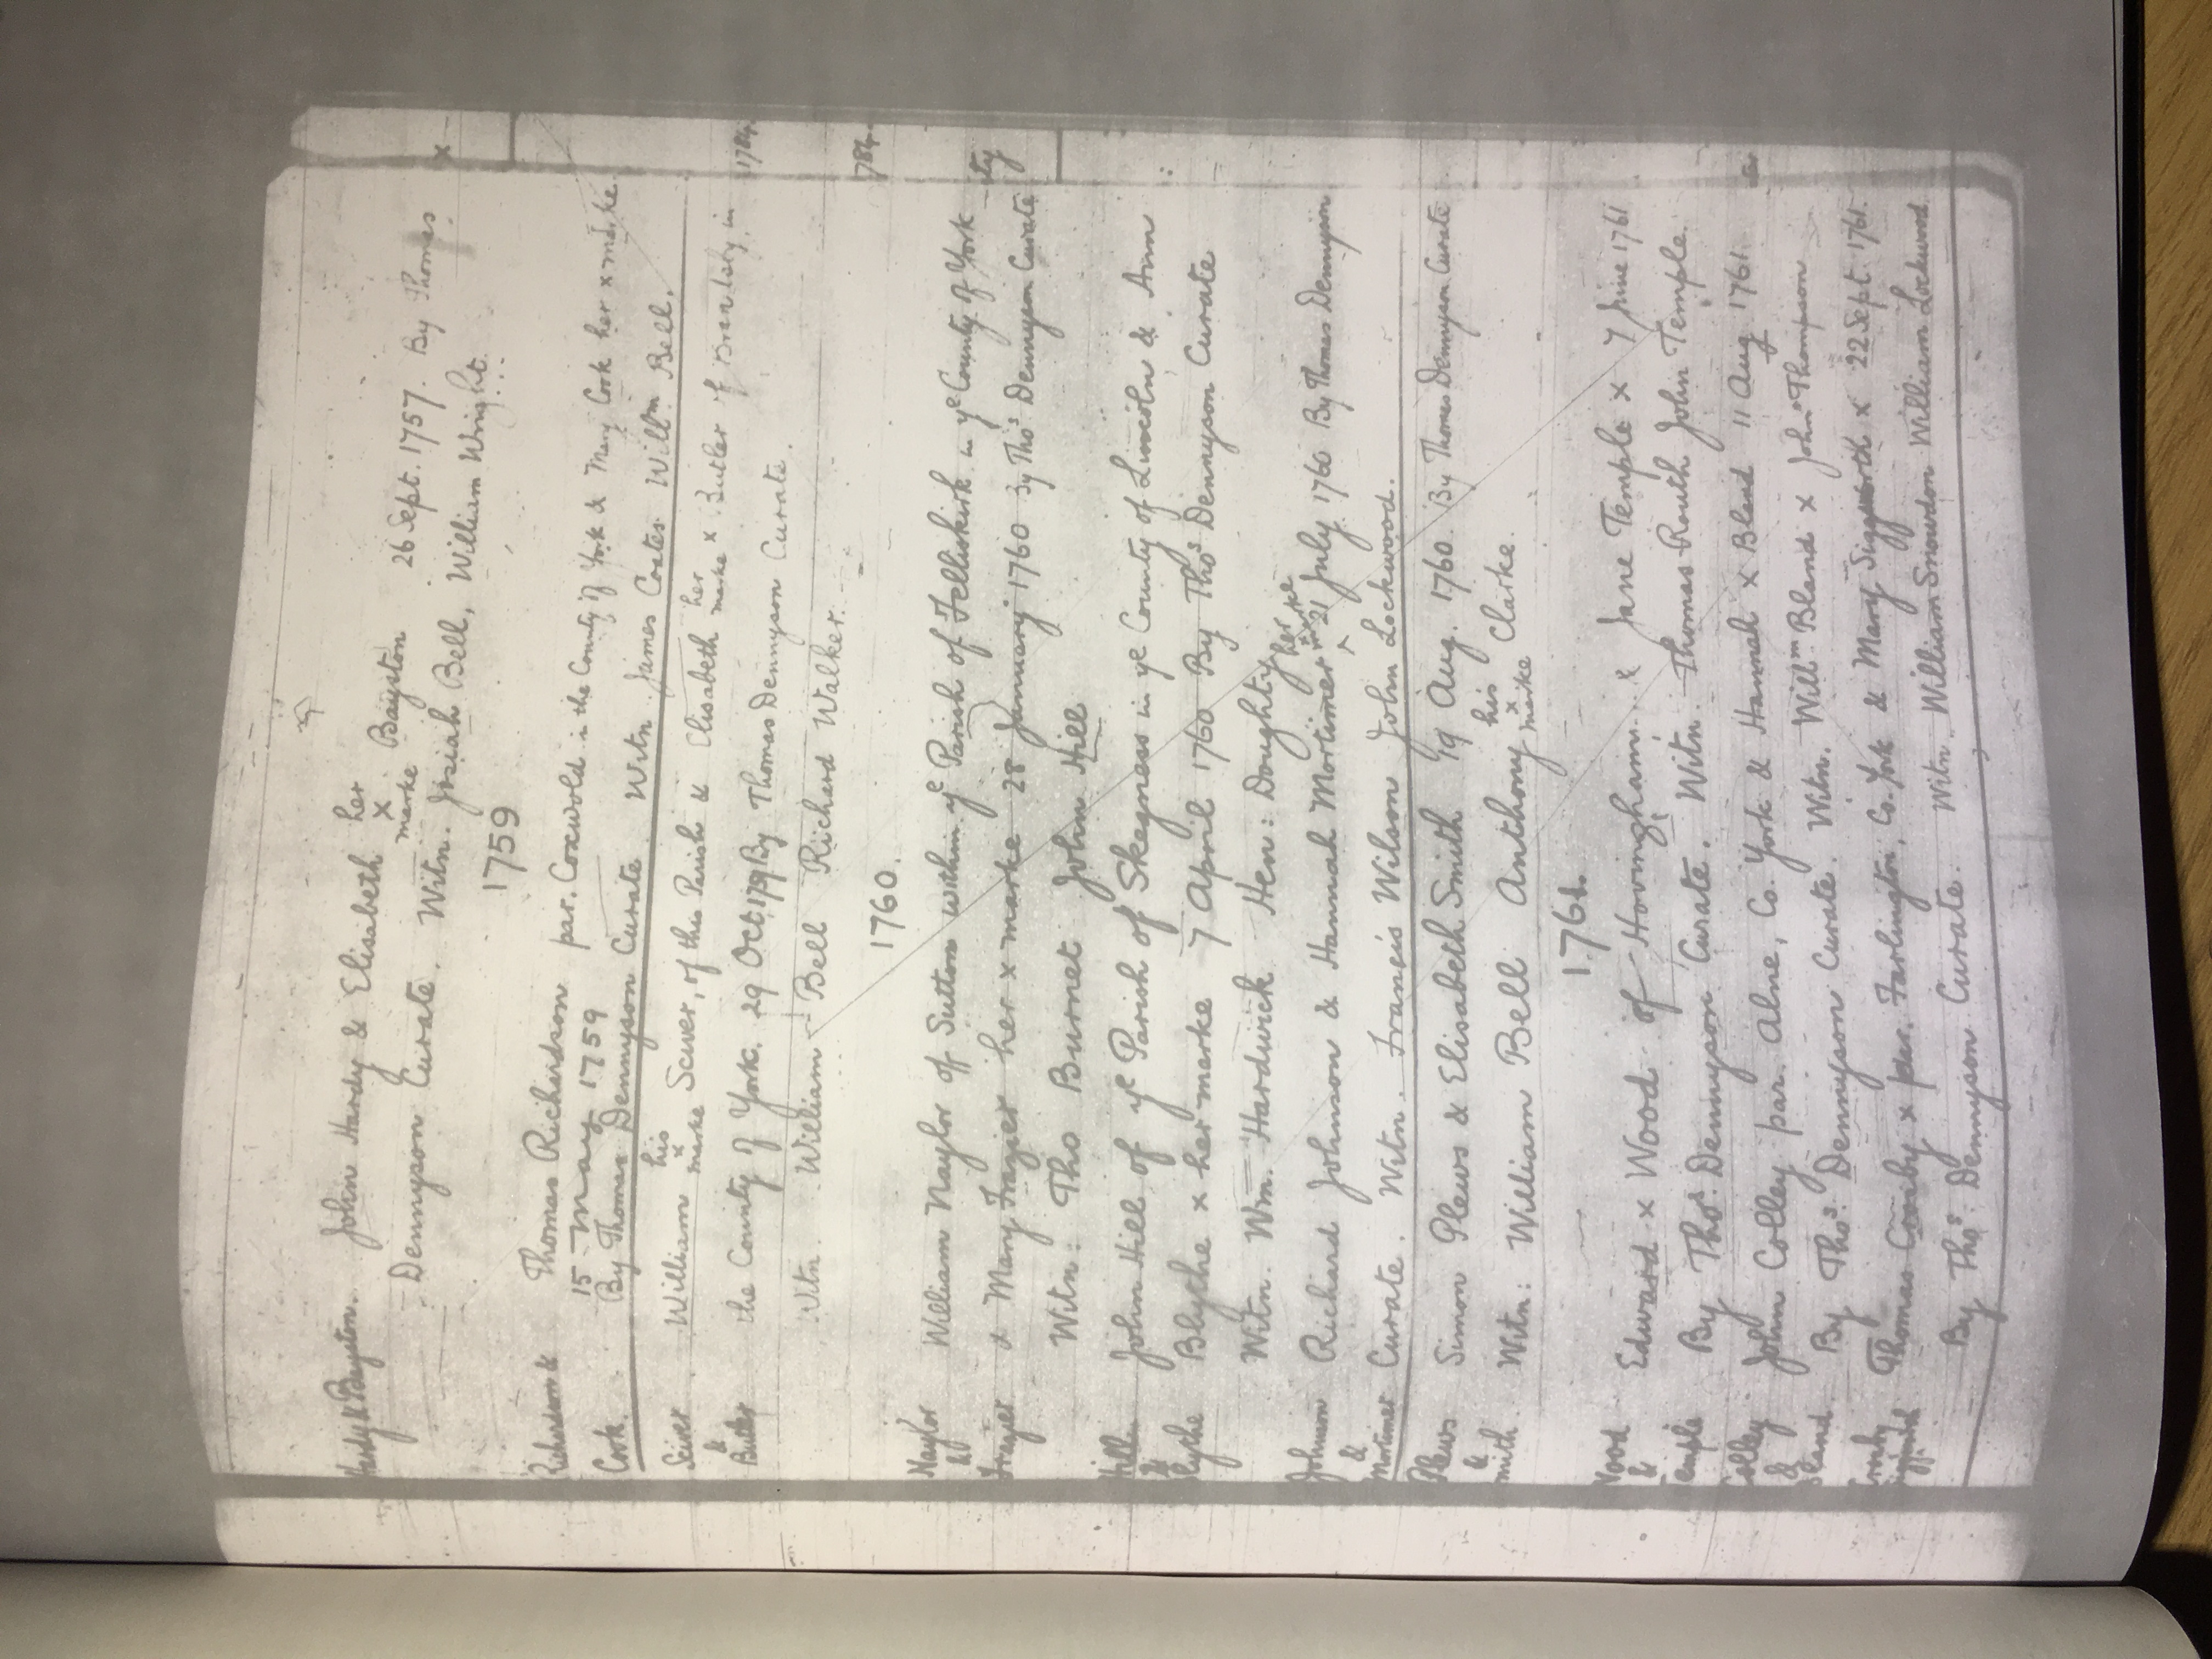 Hardy & Bayston. John Hardy & Elisabeth her x marke Bayston 26 Sept. 1757. By Thomas x
Dennyson Curate. Witn. Josiah Bell, William Wright.
1759
Richardson & Thomas Richardson par. Coxwold in the County of York & Mary Cook her x marke.
15 May 1759
Cook. By Thomas Dennyson Curate Witn James Coates Willm Bell.
William his x marke Sewer, of this Parish & Elisabeth her marke x Butler of Brandsby, in
&
Butler the County of York. 29 Oct 1759 By Thomas Dennyson Curate. 1784
Witn. William Bell Richard Walker.
1760. 784
Naylor William Naylor of Sutton within ye Parish of Felliskirk in ye County of York
&
Frazier & Mary Frazier her x marke 28 January 1760 By Thos Dennyson Curate ity
Witn: Tho Burnet John Hill
Hill John Hill of ye Parish of Skegness in ye County of Lincoln & Ann :
&
Blythe Blythe x her marke 7 April 1760 By Thos Dennyson Curate
Witn. Wm. Hardwick Hen: Doughty
Johnson Richard Johnson & Hannah Mortimer her x marke ^ 21 July 1760 By Thomas Dennyson
&
Mortimer Curate. Witn. Francis Wilson John Lockwood.
Plews Simon Plews & Elisabeth Smith 19 Aug. 1760. By Thomas Dennyson Curate
&
Smith. Witn: William Bell Anthony his x marke Clarke.
1761.
Wood Edward x Wood of Hovingham & Jane Temple x 7 June 1761
&
Temple By Thos Dennyson Curate. Witn. Thomas Routh John Temple.
Colley John Colley par. Alne, Co. York & Hannah x Bland 11 Aug 1761.
&
Bland By Thos. Dennyson Curate. Witn. Willm Bland x John Thompson
Thomas x par. Farlington, Co. York & Mary Siggsworth x 22 Sept 1761.
By Thos. Dennyson Curate. Witn. William Snowdon William Lockwood